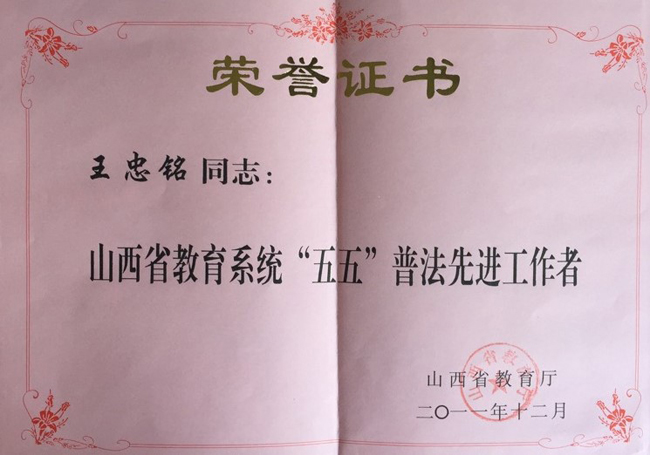 荣誉证书
王忠铭同志：
山西省教育系统“五五”普法先进工作者
山西省教育厅
二〇一一年十二月